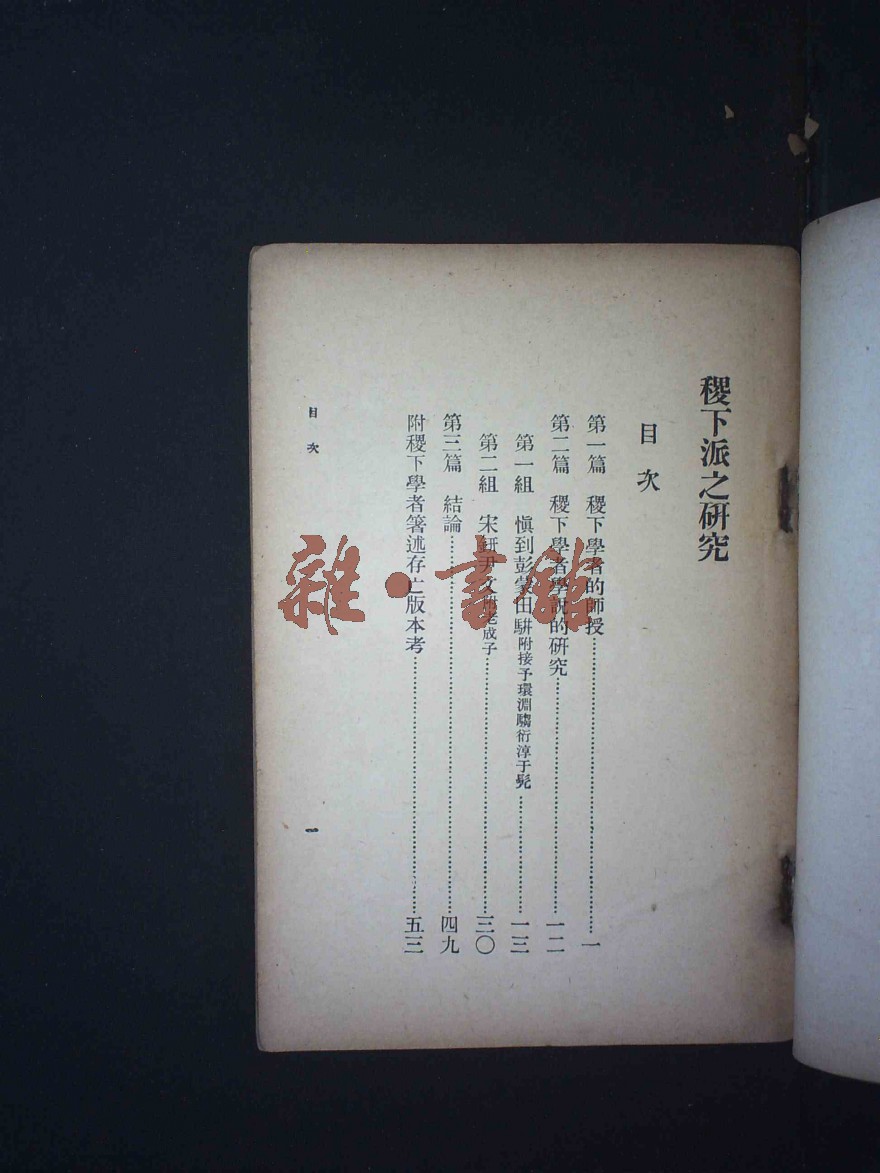 稷下派之研究
目次
第一篇 稷下學者的師授……一
第二篇 稷下學者學說的研究……一二
第一組 愼到彭蒙田騈附接予環淵騶衍淳于髠……一三
第二組 宋鈃尹文附老成子……三〇
第三篇 結論……四九
附稷下學者箸述存亡版本考……五三
目次
一
雜·書館